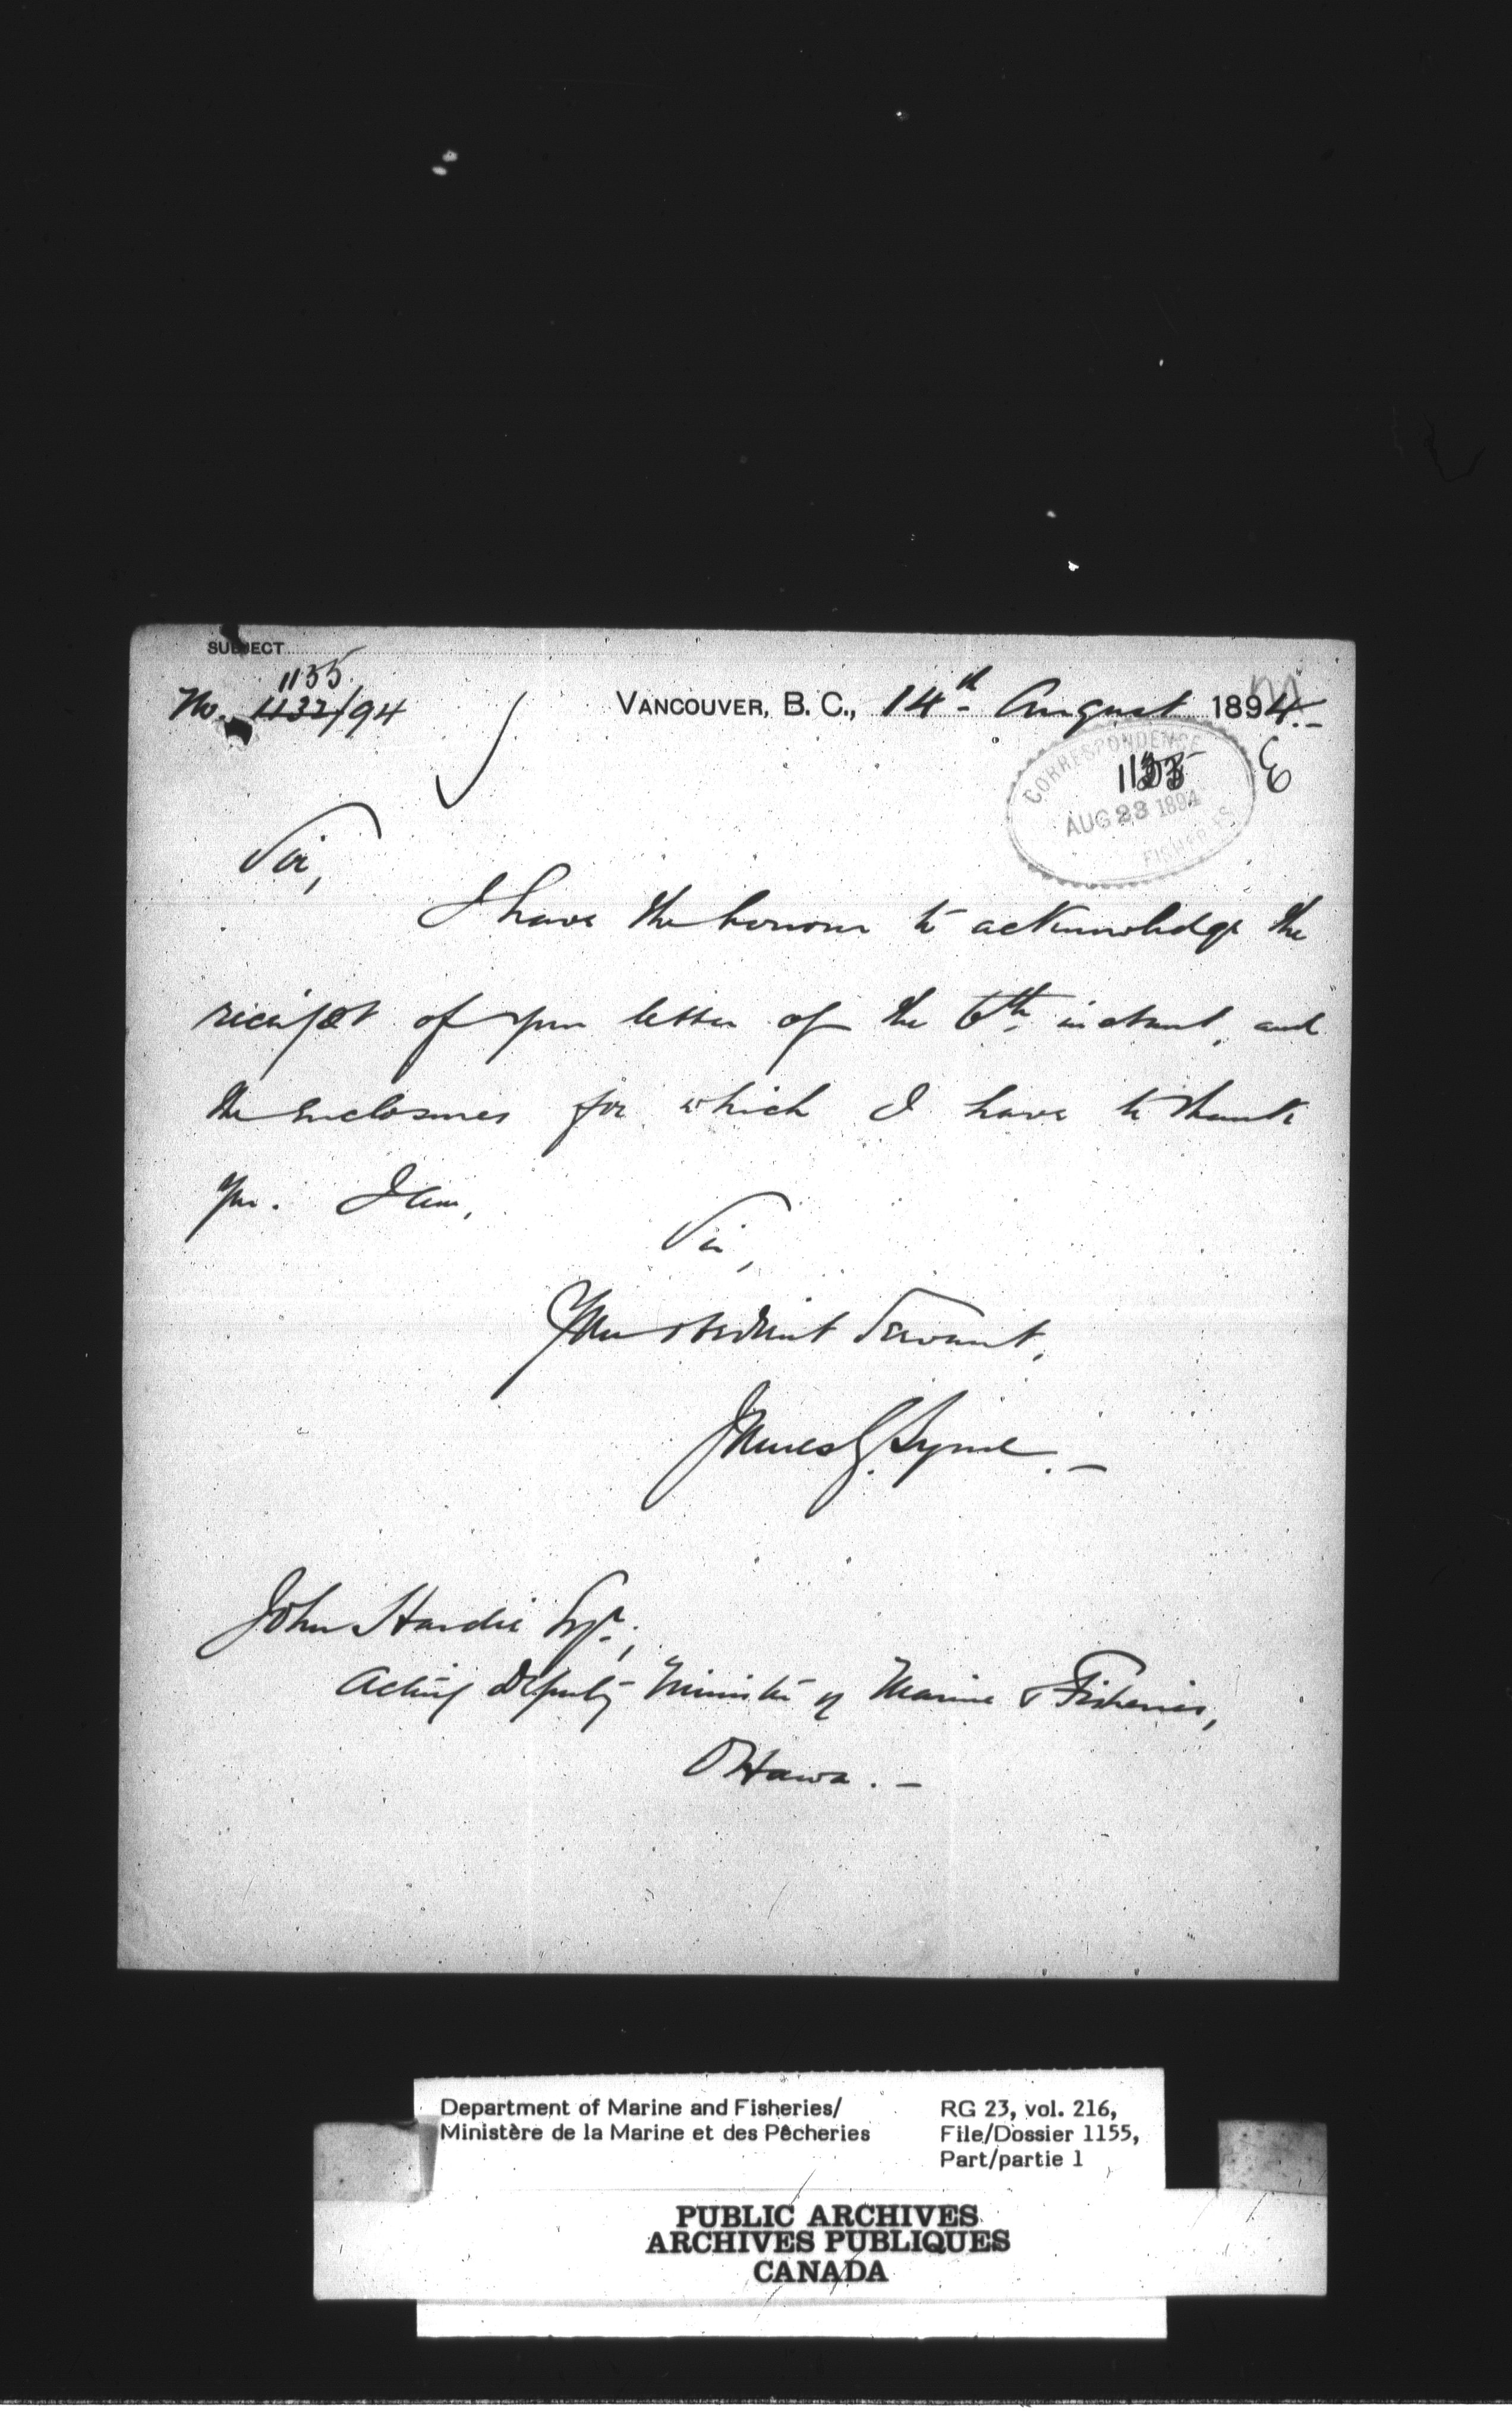 SUBJECT
1155
No. 1132/94
VANCOUVER, B. C., 14th August 1894.-
CORRESPONDENCE
1155
AUG 23 1894
FISHERIES
Sir,
I have the honour to acknowledge the
receipt of your letter of the 6th instant, and
the enclosures for which I have to thank
you. I am,
Sir,
Your obedient Servant,
James G. Syme.-
John Hardie Esqr.,
Acting Deputy Minister of Marine & Fisheries,
Ottawa.-
Department of Marine and Fisheries/
Ministère de la Marine et des Pêcheries
RG 23, vol. 216,
File/Dossier 1155,
Part/partie 1
PUBLIC ARCHIVES
ARCHIVES PUBLIQUES
CANADA